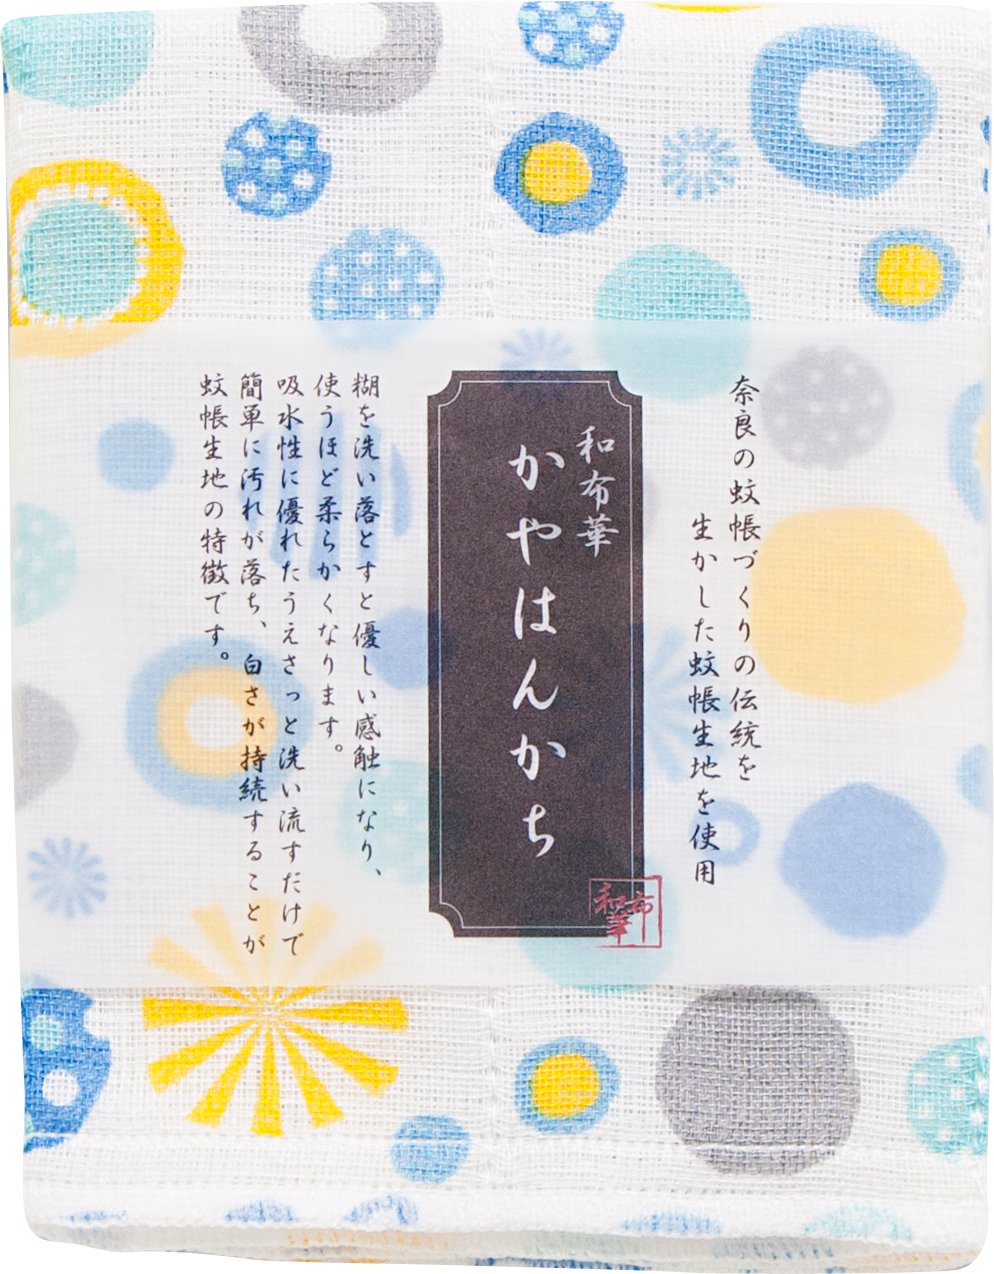 奈良の蚊帳づくりの伝統を
生かした蚊帳生地を使用
和布華
かやはんかち
布
和華
糊を洗い落とすと優しい感触になり、
使うほど柔らかくなります。
吸水性に優れたうえさっと洗い流すだけで
簡単に汚れが落ち、白さが持続することが
蚊帳生地の特徴です。